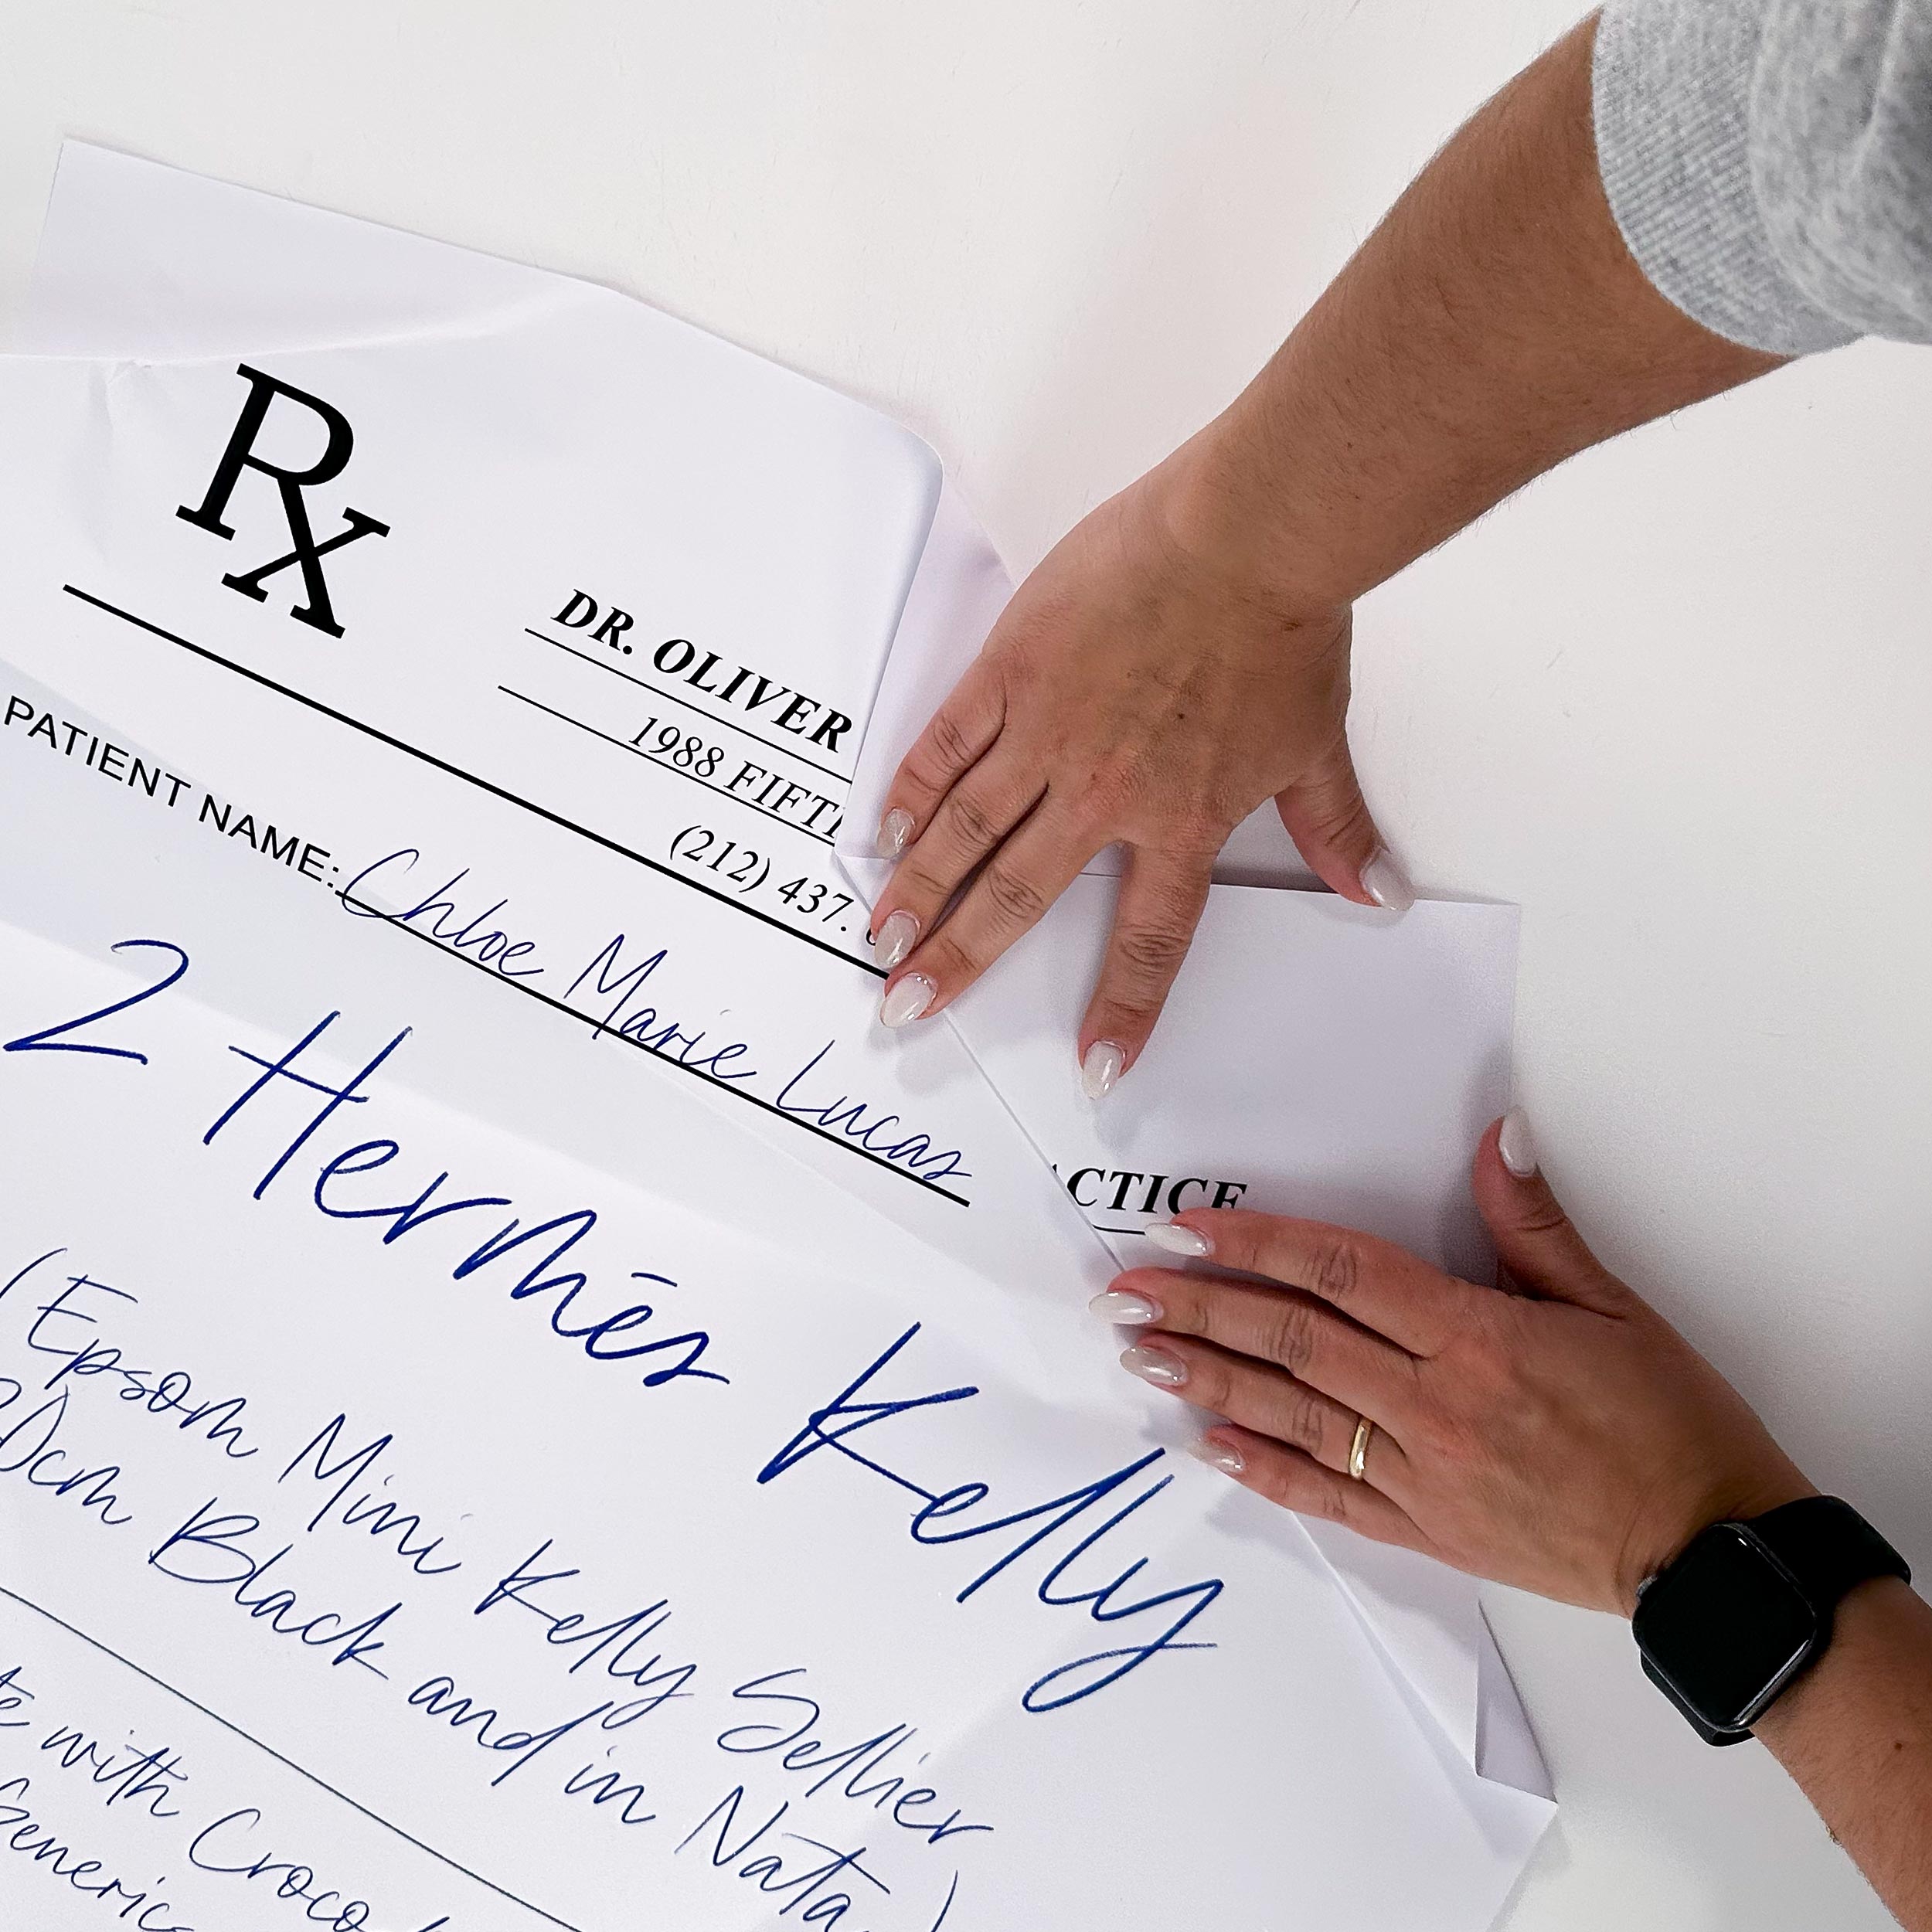 Rx
DR. OLIVER
1988 FIFT
(212) 437.
PATIENT NAME: Chloe Marie Lucas
CTICE
2 Hermés Kelly
(Epsom Mini Kelly Sellier
20cm Black and in Nata)
with Croco
Generic